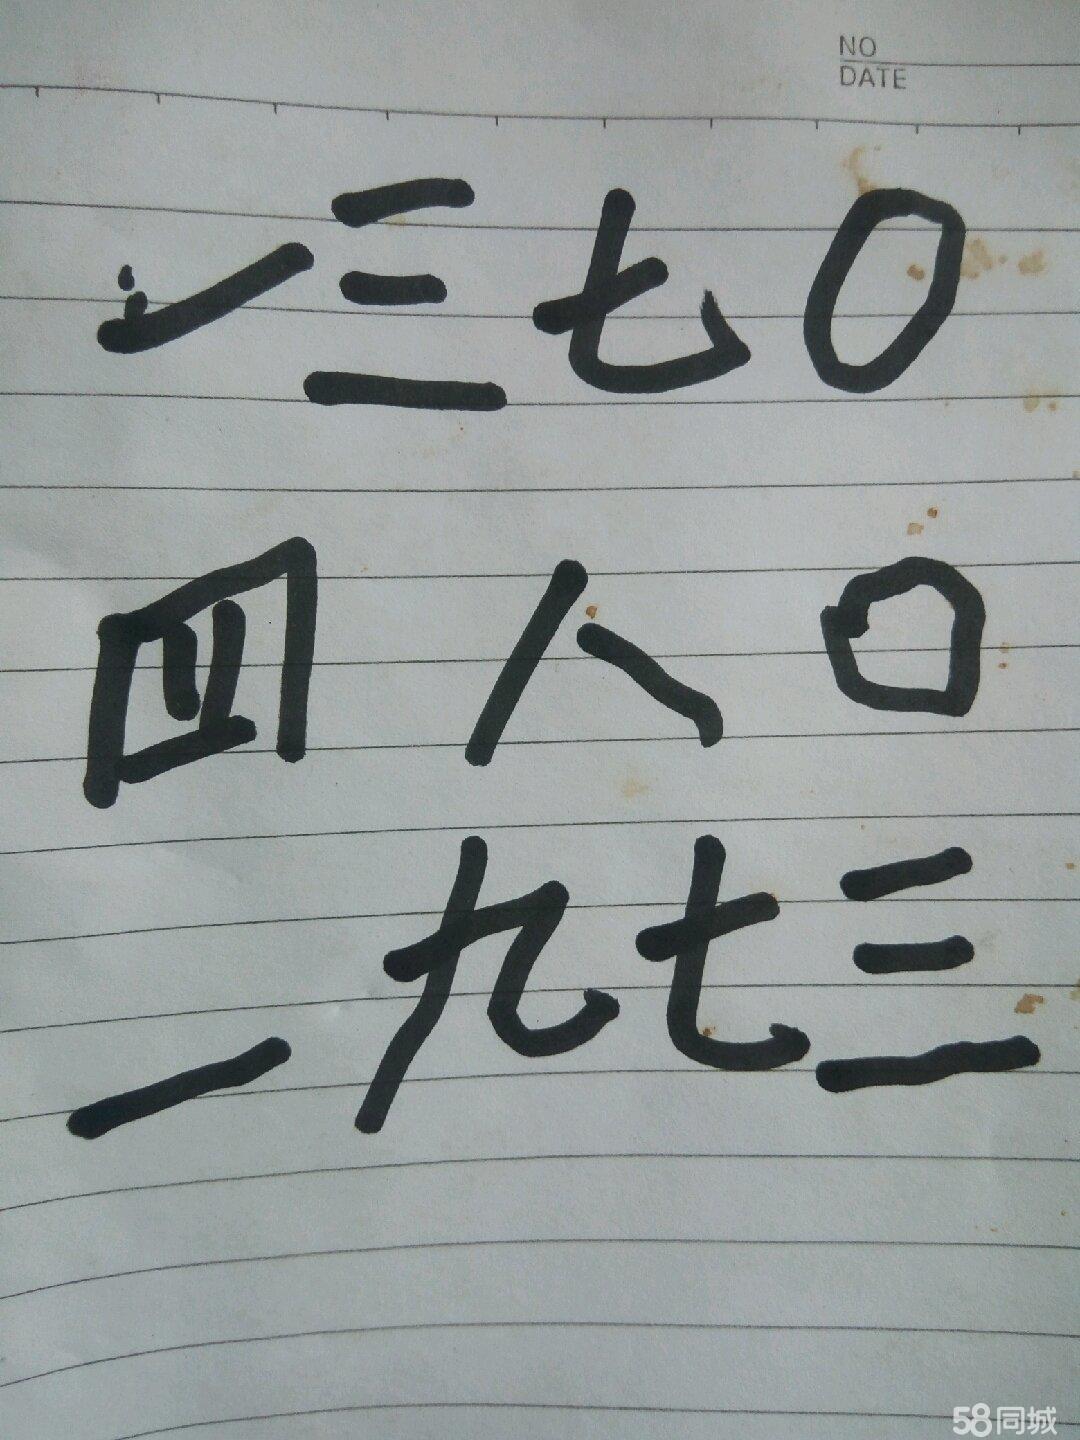 NO
DATE
一三七0
四八0
一九七三
58同城